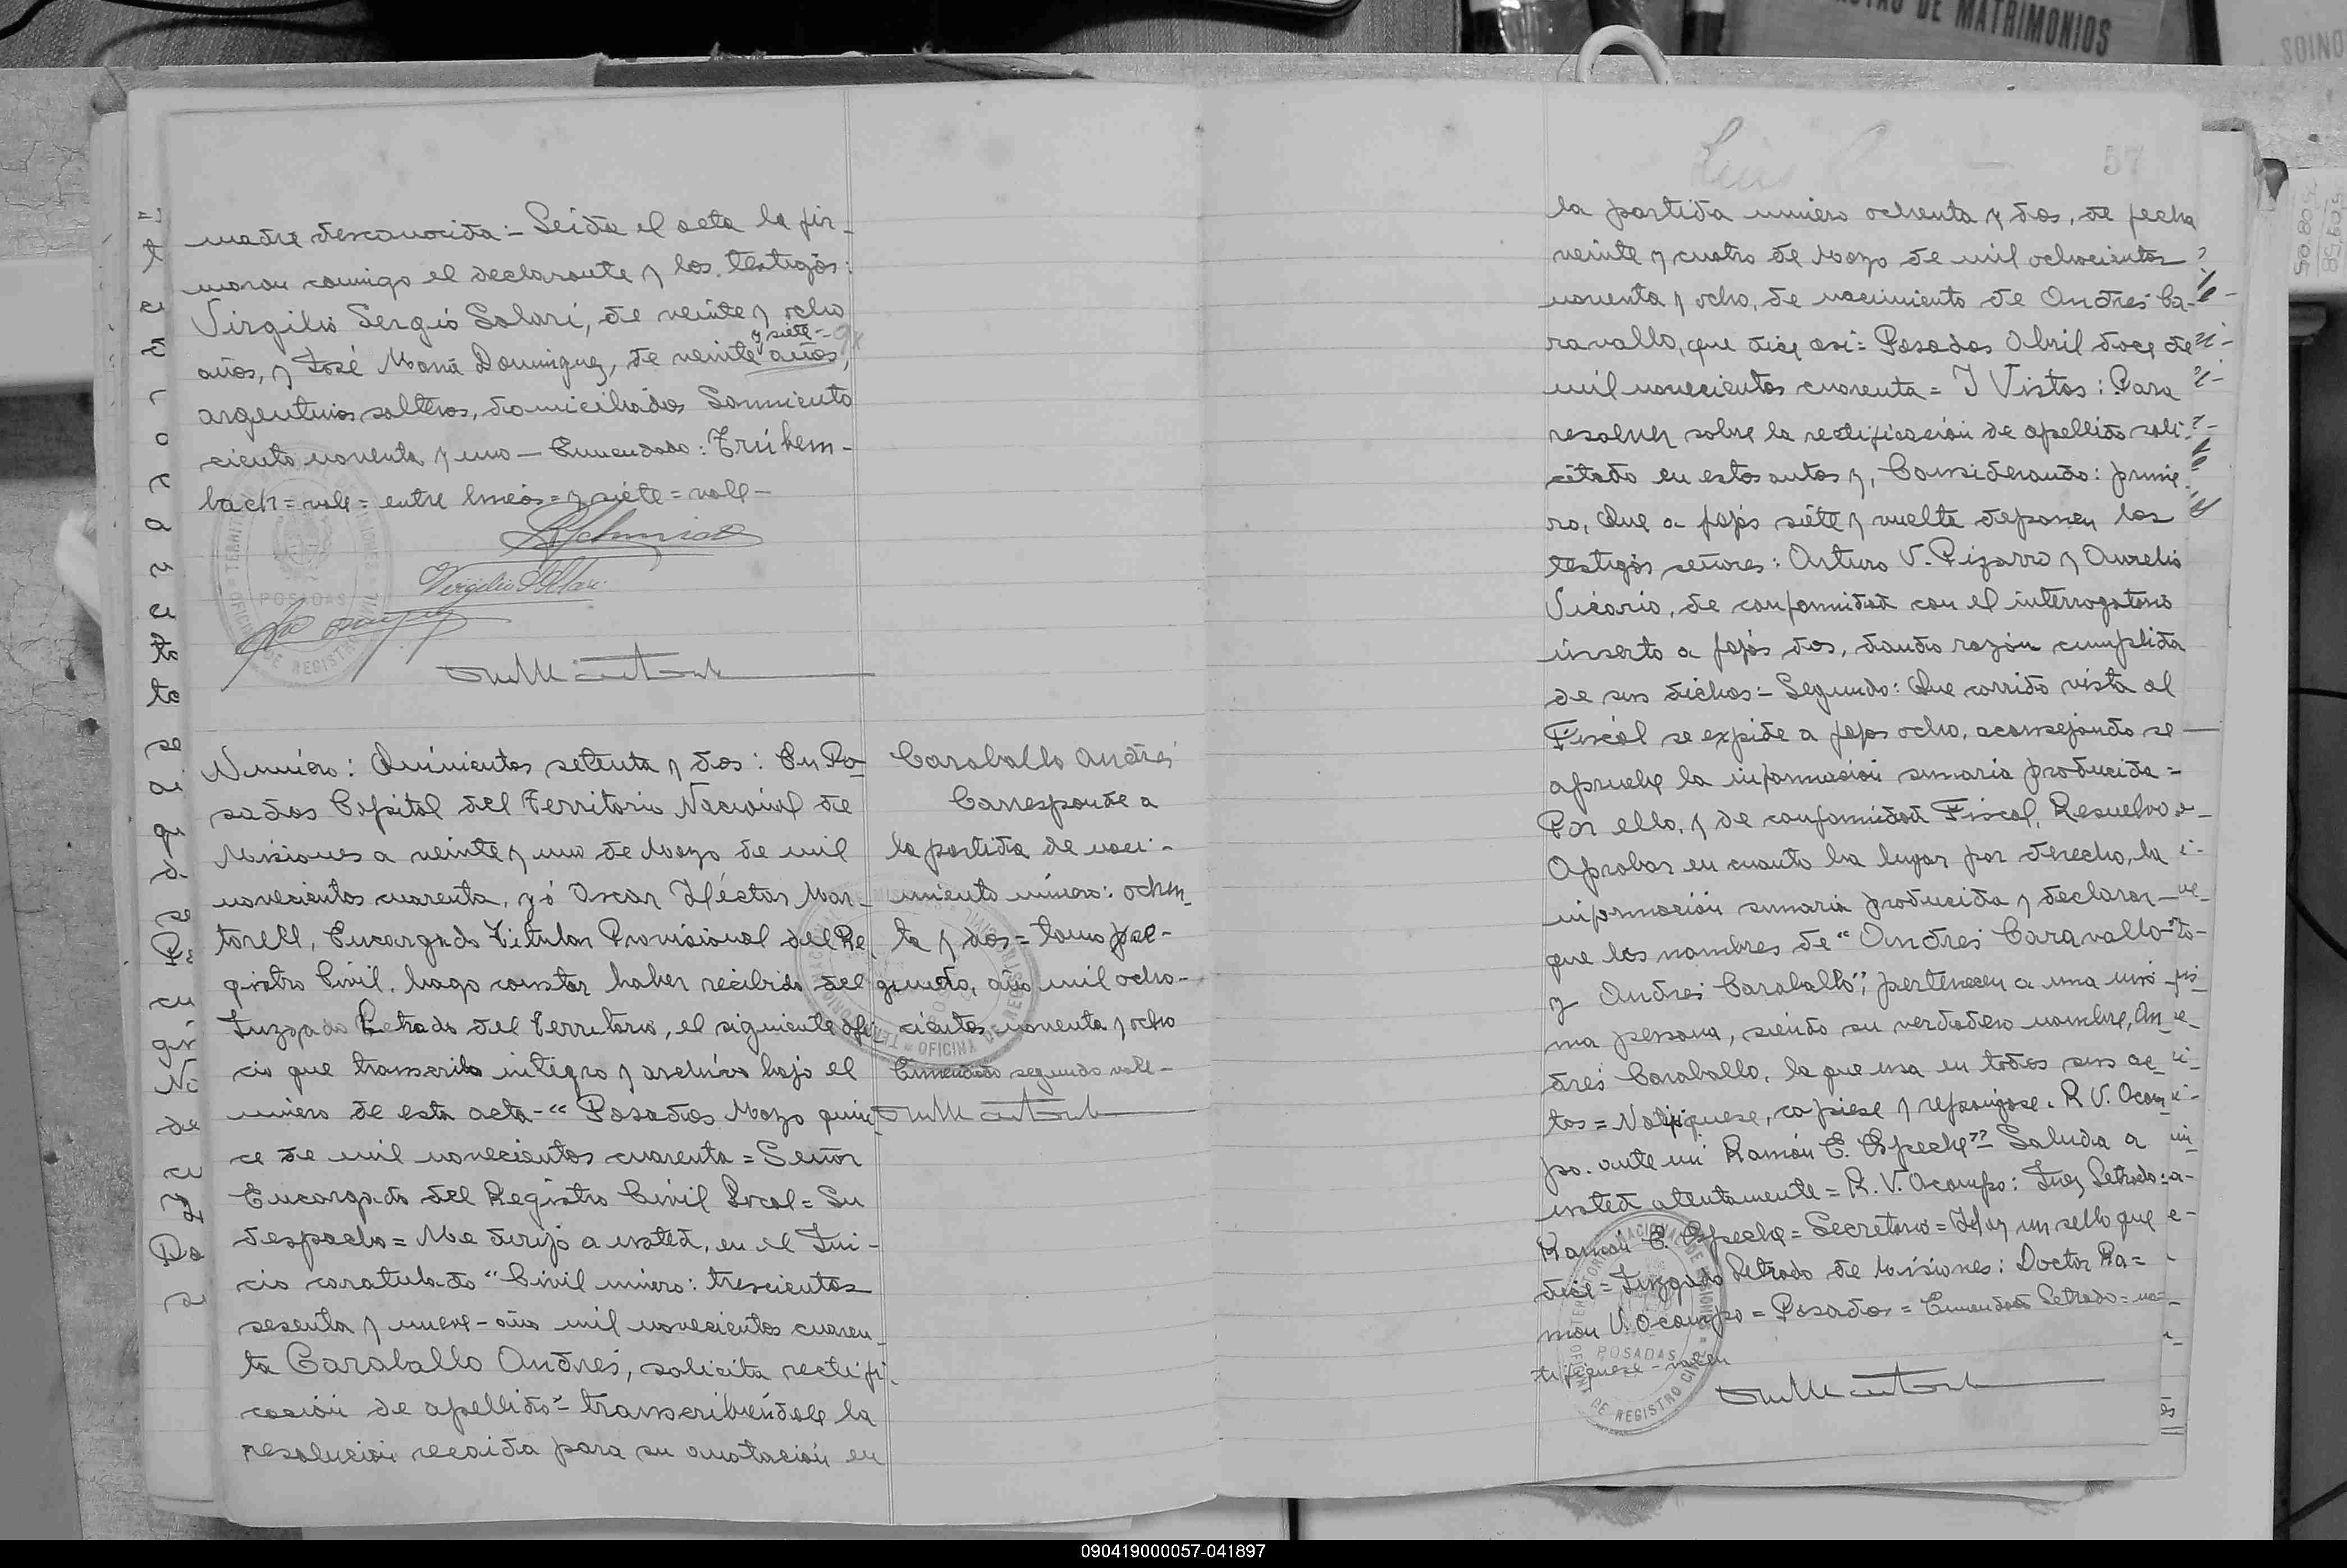 madre desconocida:- Leida el acta la fir-
maron conmigo el declarante y los testigos:
Virgilio Sergio Solari, de veinte y ocho
y siete-
años, y José María Dominguez, de veinte años,
argentinos solteros, domiciliados Sarmiento
ciento noventa y uno - Enmendado: Trükem-
bach = vale = entre lineas = y siete = vale -
POSADAS
Número: Quinientos setenta y dos: En Po-
sadas Capital del Territorio Nacional de
Misiones a veinte y uno de Marzo de mil
novecientos cuarenta, yó Oscar Héctor Mar-
torell, Encargado Titular Provisional del Re
gistro Civil, hago constar haber recibido del
Juzgado Letrado del Territorio, el siguiente ofi
cio que transcribo integro y archivo bajo el
número de esta acta - "Posadas Marzo quin
ce de mil novecientos cuarenta = Señor
Encargado del Registro Civil Local = Su
despacho = Me dirijo a usted, en el Jui-
cio caratulado "Civil número: trescientos
sesenta y nueve - año mil novecientos cuaren-
ta Caraballo Andrés, solicita rectifi-
cación de apellido" - transcribiéndole la
resolución recaida para su anotación en
Caraballo Andrés
Corresponde a
la partida de naci-
miento número: ochen-
ta y dos = tomo se-
gundo, año mil ocho-
cientos noventa y ocho
Enmendado segundo vale -
57
la partida número ochenta y dos, de fecha
veinte y cuatro de Marzo de mil ochocientos
noventa y ocho, de nacimiento de Andrés Ca-
ravallo, que dice asi: Posadas Abril doce de
mil novecientos cuarenta = Y Vistos: Para
resolver sobre la rectificación de apellido soli-
citado en estos autos y, Considerando: prime
ro, Que a fojas siéte y vuelta deponen los
testigos señores: Arturo V. Pizarro y Aurelio
Vicario, de conformidad con el interrogatorio
inserto a fojas dos, dando razón cumplida
de sus dichos = Segundo: Que corrido vista al
Fiscál se expide a fojas ocho, aconsejando se
apruebe la información sumaria producida =
Por ello, y de conformidad Fiscal, Resuelvo
Aprobar en cuanto ha lugar por derecho, la
información sumaria producida y declarar
que los nombres de "Andrés Caravallo"
y "Andrés Caraballo"; pertenecen a una mis
ma persona, siendo su verdadero nombre, An
drés Caraballo, la que usa en todos sus ac
tos = Notifiquese, copiese y repongase. R. V. Ocam
po. ante mi Ramón E. Espeche" = Saluda a
usted atentamente = R. V. Ocampo: Juez Letrado:
Ramón E. Espeche = Secretario = Hay un sello que
dice = Juzgado Letrado de Misiones: Doctor Ra=
mon V. Ocampo = Posadas = Enmendados Letrado = no=
tifiquese - valen
POSADAS
DE MATRIMONIOS
090419000057-041897